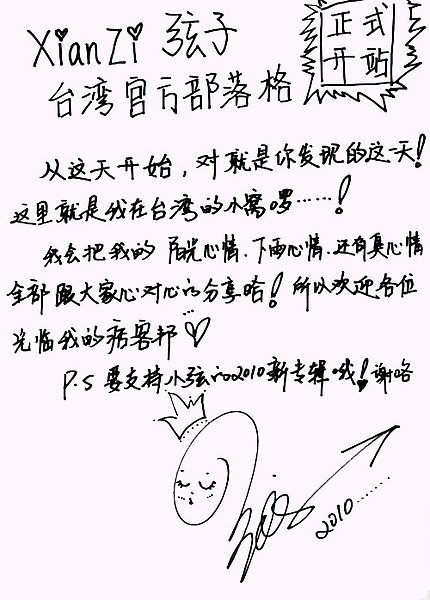 XianZi 弦子
正式
开站
台湾官方部落格
从这天开始，对就是你发现的这一天！
这里就是我在台湾的小窝啰……！
我会把我的阳光心情．下雨心情．还有真心情
全部跟大家心对心的分享哈！所以欢迎各位
光临我的痞客邦♡
P.S 要支持小弦的2010新专辑哦！谢咯
2010……